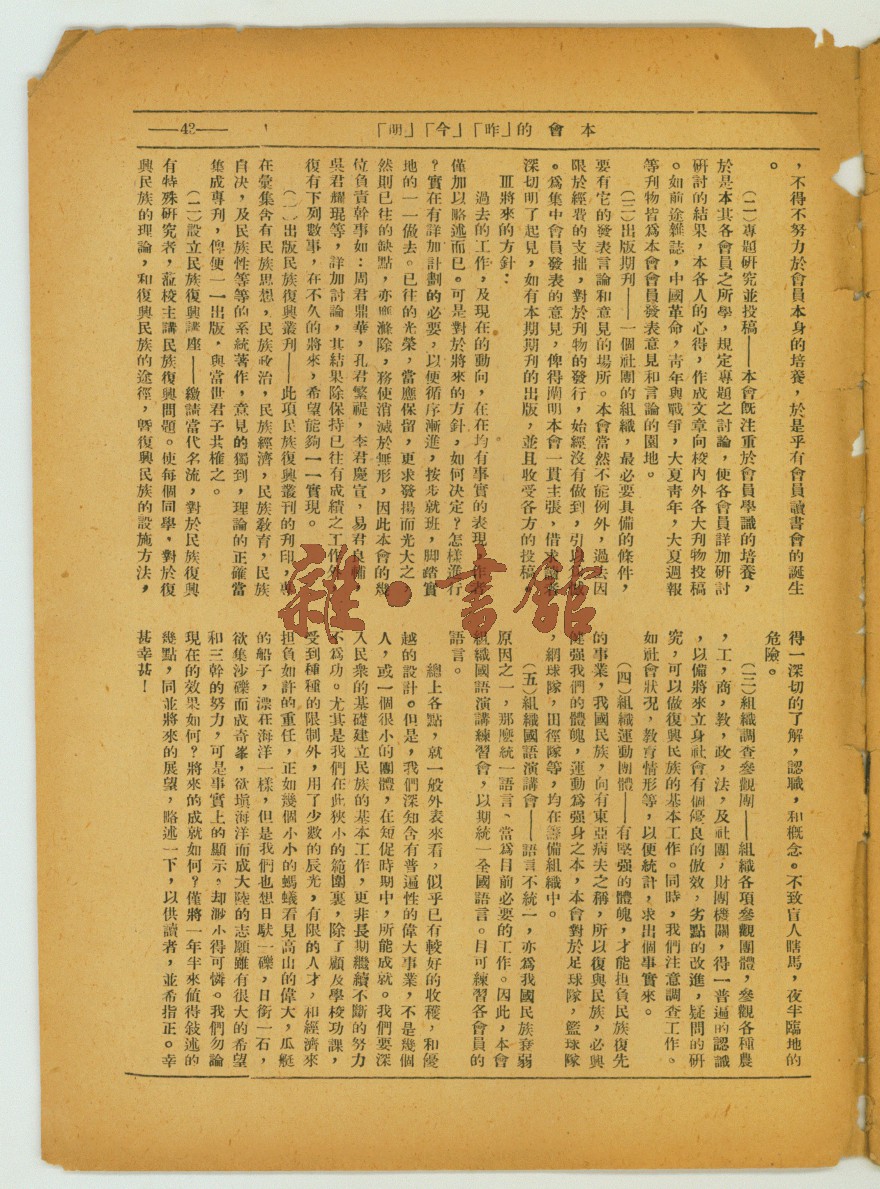 本會的「昨」「今」「明」
—42—
，不得不努力於會員本身的培養，於是乎有會員讀書會的誕生
。
（二）專題研究並投稿——本會旣注重於會員學識的培養，
於是本其各會員之所學，規定專題之討論，使各會員詳加研討
研討的結果，本各人的心得，作成文章向校內外各大刊物投稿
。如前途雜誌，中國革命，靑年與戰爭，大夏靑年，大夏週報
等刊物皆爲本會會員發表意見和言論的園地。
（三）出版期刊——一個社團的組織，最必要具備的條件，
要有它的發表言論和意見的場所。本會當然不能例外，過去因
限於經費的支拙，對於刊物的發行，始經沒有做到，引以
。爲集中會員發表的意見，俾得闡明本會一貫主張，借求
深切明了起見，如有本期期刊的出版，並且收受各方的投稿。
Ⅲ將來的方針：
過去的工作，及現在的動向，在在均有事實的表現，
僅加以略述而已。可是對於將來的方針，如何決定？怎樣進行
？實在有詳加計劃的必要，以便循序漸進，按步就班，脚踏實
地的一一做去。已往的光榮，當應保留，更求發揚而光大之
然則已往的缺點，亦應滌除，務使消滅於無形，因此本會的幾
位負責幹事如：周君鼎華，孔君繁禔，李君慶宣，易君良輔
吳君耀琨等，詳加討論，其結果除保持已往有成績之工作外
復有下列數事，在不久的將來，希望能夠一一實現。
（一）出版民族復興叢刊——此項民族復興叢刊的刋印，專
在彙集含有民族思想，民族政治，民族經濟，民族敎育，民族
自決，及民族性等等的系統著作，意見的獨到，理論的正確當
集成專刋，俾便一一出版，與當世君子共榷之。
（二）設立民族復興講座——繳請當代名流，對於民族復興
有特殊硏究者，蒞校主講民族復興問題。使每個同學，對於復
興民族的理論，和復興民族的途徑，曁復興民族的設施方法，
得一深切的了解，認職，和槪念。不致盲人瞎馬，夜半臨地的
危險。
（三）組織調查參觀團——組織各項參觀團體，參觀各種農
，工，商，敎，政，法，及社團，財團機關，得一普遍的認識
，以備將來立身社會有個優良的倣效，劣點的改進，疑問的硏
究，可以做復興民族的基本工作。同時，我們注意調查工作。
如社會狀況，敎育情形等，以便統計，求出個事實來。
（四）組織運動團體——有堅强的體魄，才能担負民族復先
的事業，我國民族，向有東亞病夫之稱，所以復興民族，必興
健强我們的體魄，運動爲强身之本，本會對於足球隊，籃球隊
，網球隊，田徑隊等，均在籌備組織中。
（五）組織國語演講會——語言不統一，亦爲我國民族衰弱
原因之一，那麽統一語言、當爲目前必要的工作。因此，本會
組織國語演講練習會，以期統一全國語言。目可練習各會員的
語言。
總上各點，就一般外表來看，似乎已有較好的收穫，和優
越的設計。但是，我們深知含有普遍性的偉大事業，不是幾個
人，或一個很小的團體，在短促時期中，所能成就。我們要深
入民衆的基礎建立民族的基本工作，更非長期繼續不斷的努力
不爲功。尤其是我們在此狹小的範圍裏，除了顧及學校功課，
受到種種的限制外，用了少數的辰光，有限的人才，和經濟來
担負如許的重任，正如幾個小小的螞蟻看見高山的偉大，瓜艇
的船子，漂在海洋一樣，但是我們也想日馱一礫，日銜一石，
欲集沙礫而成奇峯，欲塡海洋而成大陸的志願雖有很大的希望
和三幹的努力，可是事實上的顯示，却渺小得可憐。我們勿論
現在的效果如何？將來的成就如何？僅將一年半來値得敍述的
幾點，同並將來的展望，略述一下，以供讀者，並希指正。幸
甚幸甚！
雜·書館